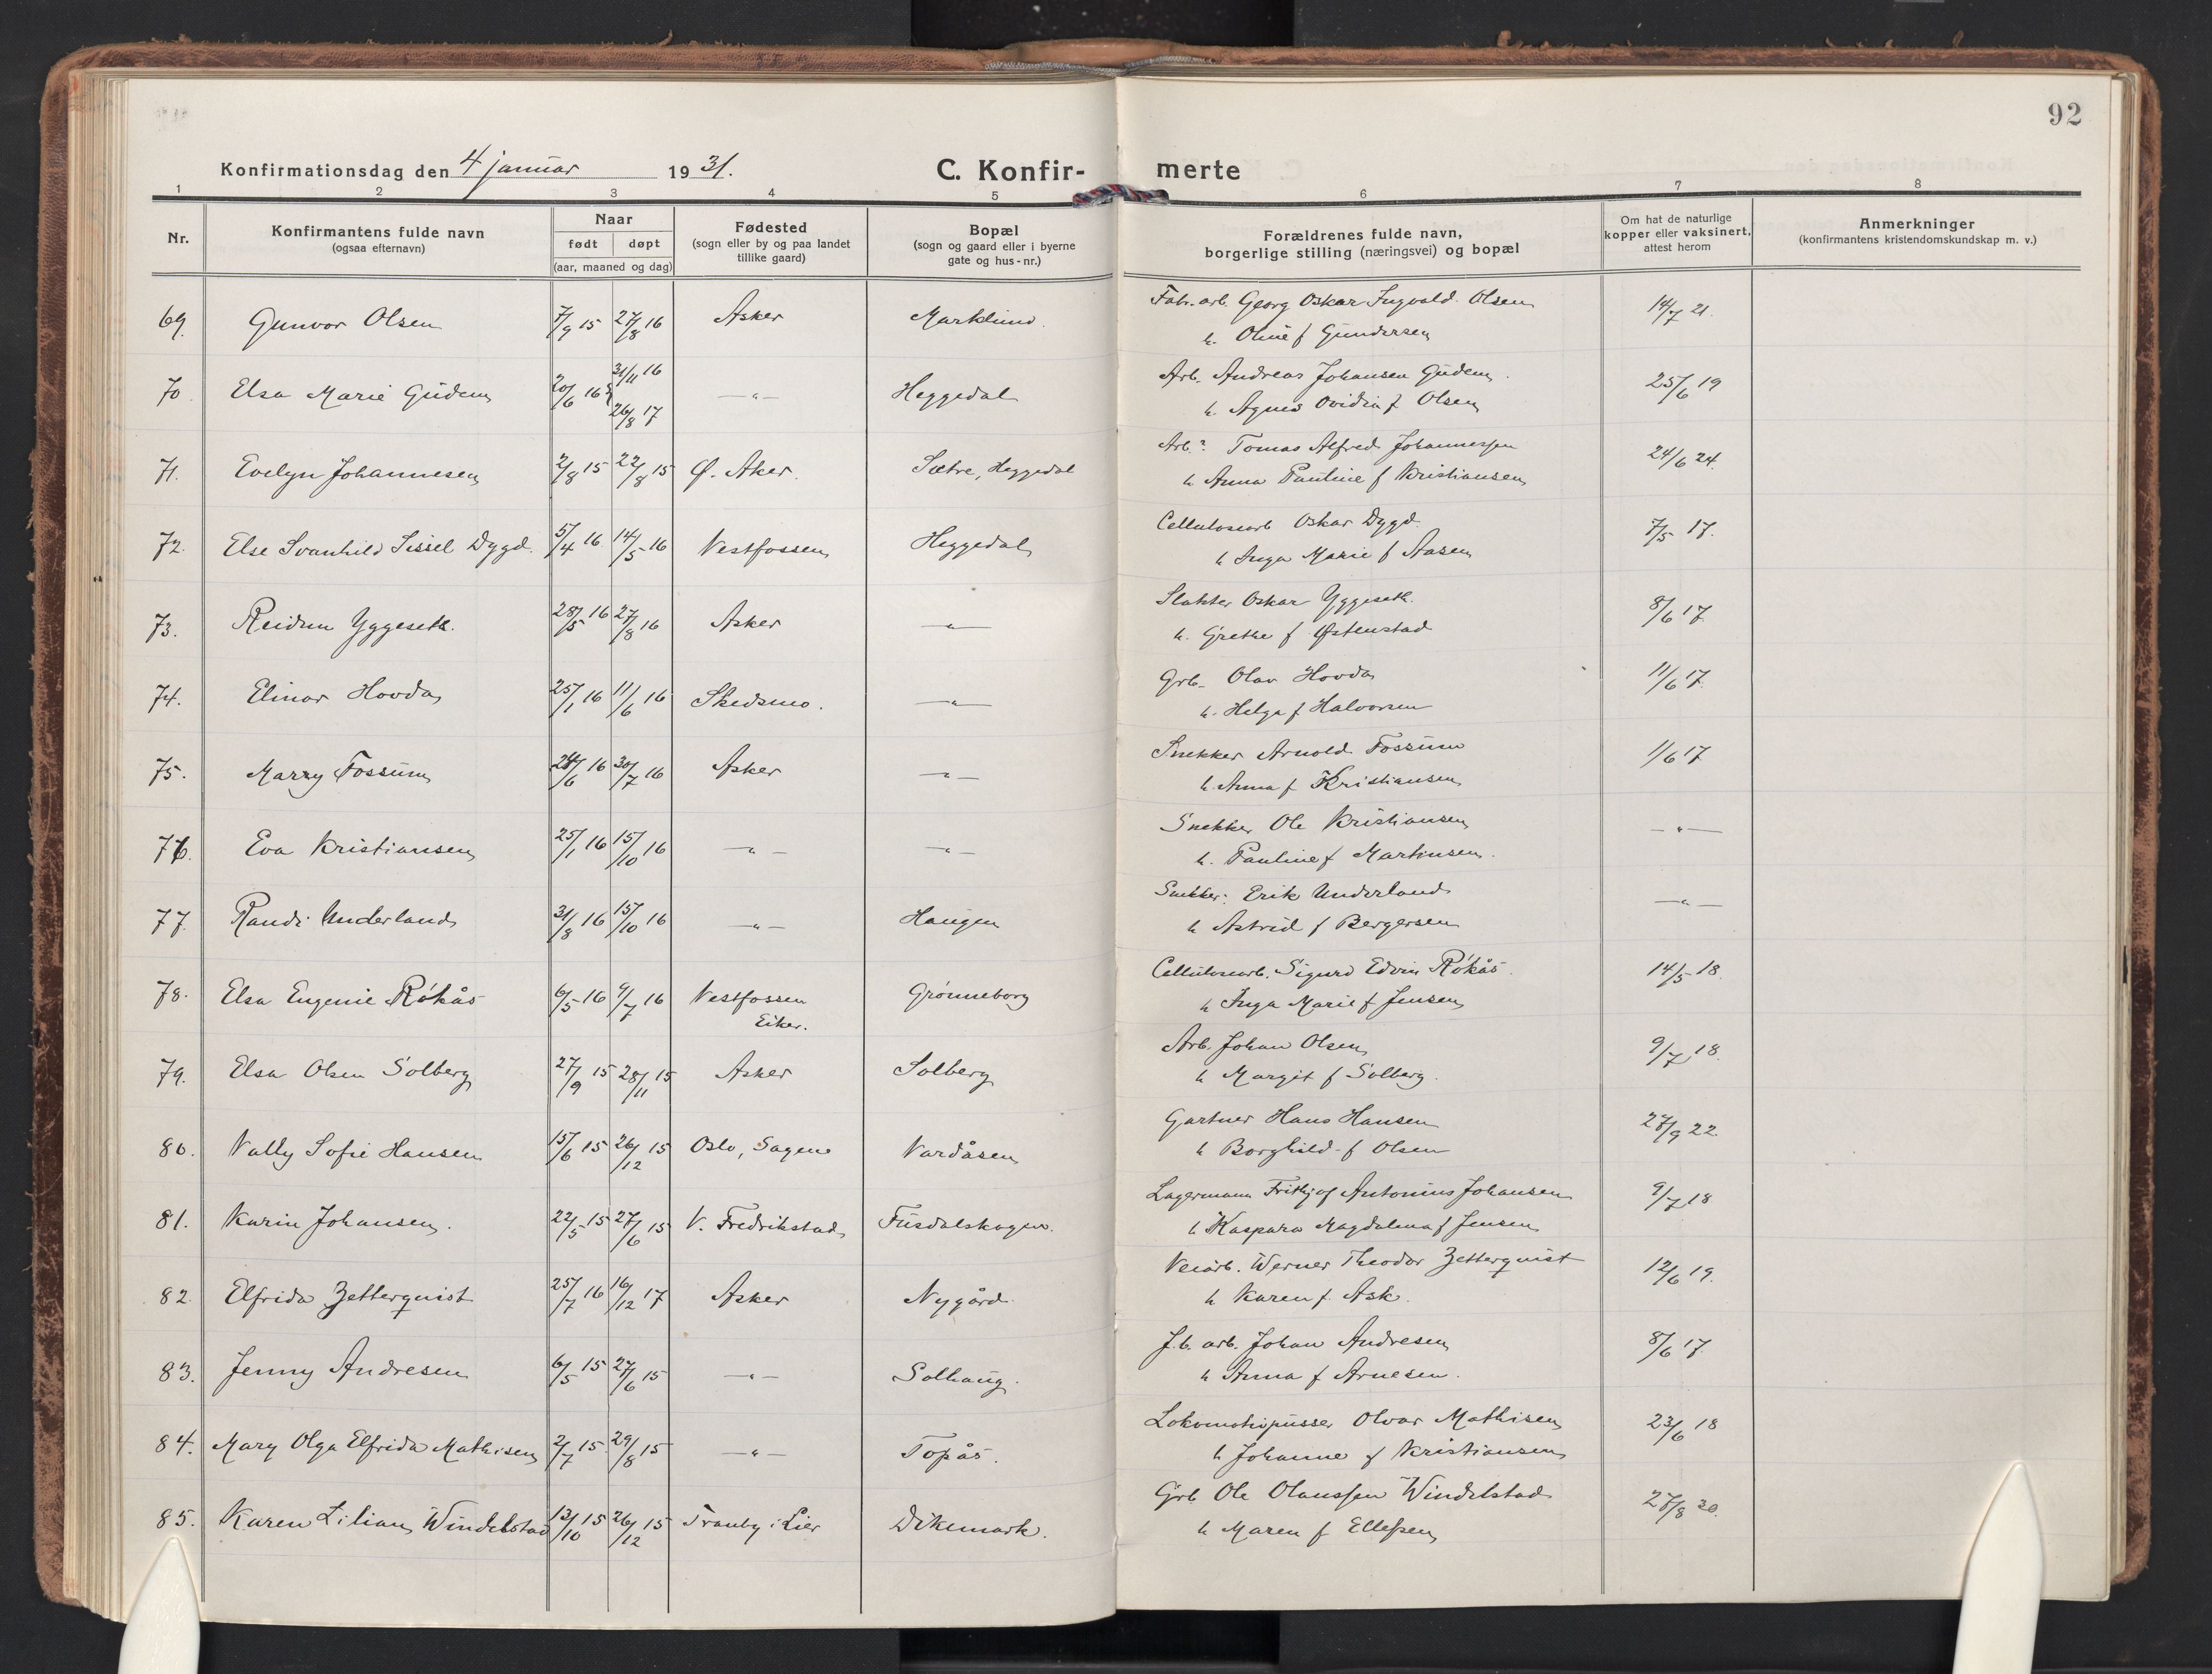 92
Konfirmationsdag den 4 januar 1931.
C. Konfir- merte
1 2 3 4 5 6 7 8
Nr.
Konfirmantens fulde navn
(ogsaa efternavn)
Naar
født døpt
(aar, maaned og dag)
Fødested
(sogn eller by og paa landet
tillike gaard)
Bopæl
(sogn og gaard eller i byerne
gate og hus-nr.)
Forældrenes fulde navn,
borgerlige stilling (næringsvei) og bopæl
Om hat de naturlige
kopper eller vaksinert,
attest herom
Anmerkninger
(konfirmantens kristendomskundskap m. v.)
69. Gunvor Olsen 7/9 15 27/8 16 Asker Marklund. Fabr. arb. Georg Oskar Ingvald Olsen 14/7 21.
h. Oline f Gundersen
70. Elsa Marie Gudem 20/6 16 31/11 16 26/8 17 —"— Heggedal Arb. Andreas Johansen Gudem. 25/6 19
h. Agnes Ovidia f Olsen
71. Evelyn Johannesen 2/8 15 22/8 15 Ø. Aker. Sætre, Heggedal Arb.? Tomas Alfred Johannessen 24/6 24.
h Anna Pauline f Kristiansen
72. Else Svanhild Sissel Dygd. 5/4 16 14/5 16 Vestfossen Heggedal Cellulosearb Oskar Dygd. 7/5 17.
h Inga Marie f Aasen
73. Reidun Yggeseth. 28/5 16 27/8 16 Asker —"— Slakter Oskar Yggeseth. 8/6 17.
h. Grethe f Østenstad
74. Elinor Hovda 25/1 16 11/6 16 Skedsmo. —"— Grb. Olav Hovda 11/6 17.
h. Helga f Halvorsen
75. Marry Fossum 28/6 16 30/7 16 Asker —"— Snekker Arnold Fossum 1/6 17
h. Anna f Kristiansen
76. Eva Kristiansen 25/1 16 15/10 16 —"— —"— Snekker Ole Kristiansen —"—
h. Pauline f Martinsen.
77. Randi Underland 31/8 16 15/10 16 —"— Haugen Snekker: Erik Underland —"—
h Astrid f Bergersen
78. Elsa Eugenie Røkås 6/5 16 9/7 16 Vestfossen Grønneborg Cellulosearb. Sigurd Edvin Røkås. 14/5 18.
Eiker. h Inga Marie f Jensen
79. Elsa Olsen Solberg 27/9 15 28/11 15 Asker Solberg Arb. Johan Olsen 9/7 18.
h Margit f Solberg.
80. Vally Sofie Hansen 15/6 15 26/12 15 Oslo, Sagene Vardåsen Gartner Hans Hansen 27/9 22.
h Borghild f Olsen
81. Karin Johansen. 22/5 15 27/6 15 V. Fredrikstad Fusdalskogen. Lagermann Frithjof Antonius Johansen 9/7 18
h Kaspara Magdalena f Jensen
82. Elfrida Zetterquist 25/7 16 16/12 17 Asker Nygård. Veiarb. Werner Theodor Zetterquist 12/6 19.
h Karen f. Ask.
83. Jenny Andresen 6/5 15 27/6 15 —"— Solhaug. J.b. arb. Johan Andresen 8/6 17.
h Anna f Arnesen.
84. Mary Olga Elfrida Mathisen 2/7 15 29/8 15 —"— Topås. Lokomotivpusser Olvar Mathisen 23/6 18
h Johanne f Kristiansen
85. Karen Lilian Windelstad 13/10 15 26/12 15 Tranby i Lier Dikemark. Grb Ole Olaussen Windelstad 27/8 20.
h Maren f Ellefsen